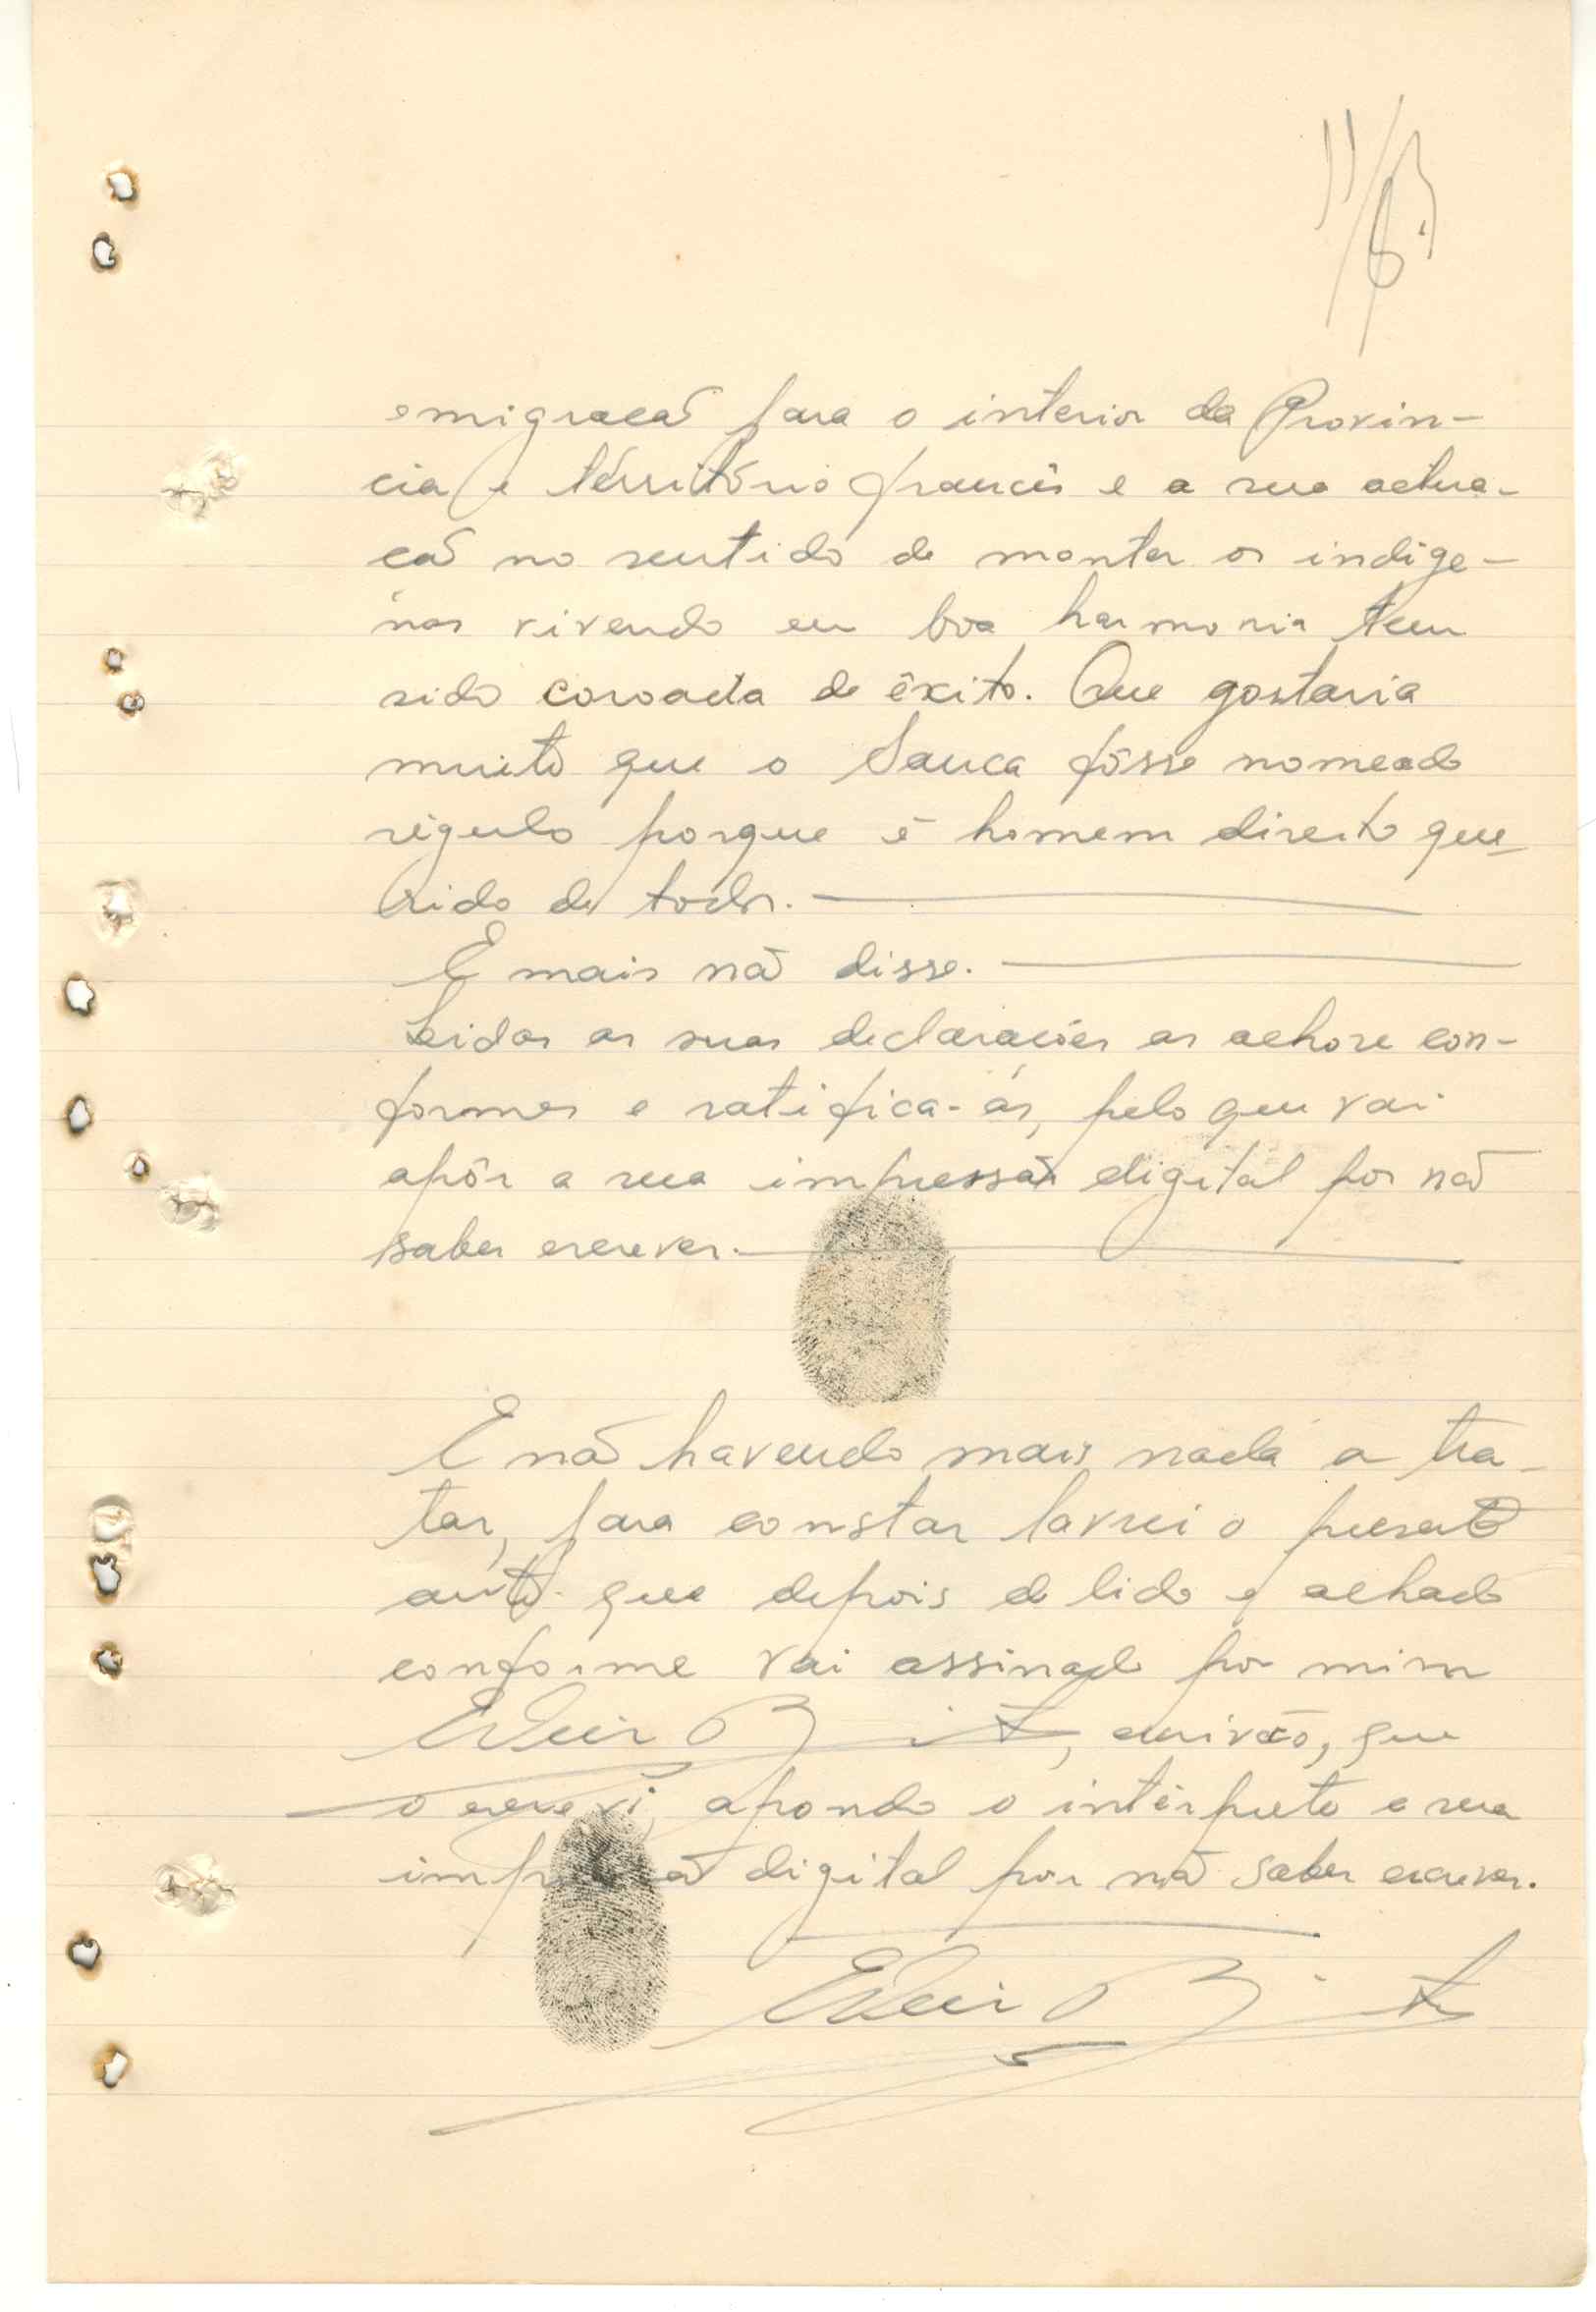 11
emigração para o interior da Provin-
cia e térritório francês e a sua actua-
ção no sentido de manter os indige-
nas vivendo em boa harmonia tem
sido coroada de êxito. Que gostaria
muito que o Sanca fôsse nomeado
régulo porque é homem direito que-
rido de todos.
E mais não disse.
Lidas as suas declarações as achou con-
formes e ratifica-as, pelo que vai
apôr a sua impressão digital por não
saber escrever.
E não havendo mais nada a tra-
tar, para constar lavrei o presente
auto que depois de lido e achado
conforme vai assinado por mim
, escrivão, que
o escrevi, apondo o intérprete a sua
impressão digital por não saber escrever.